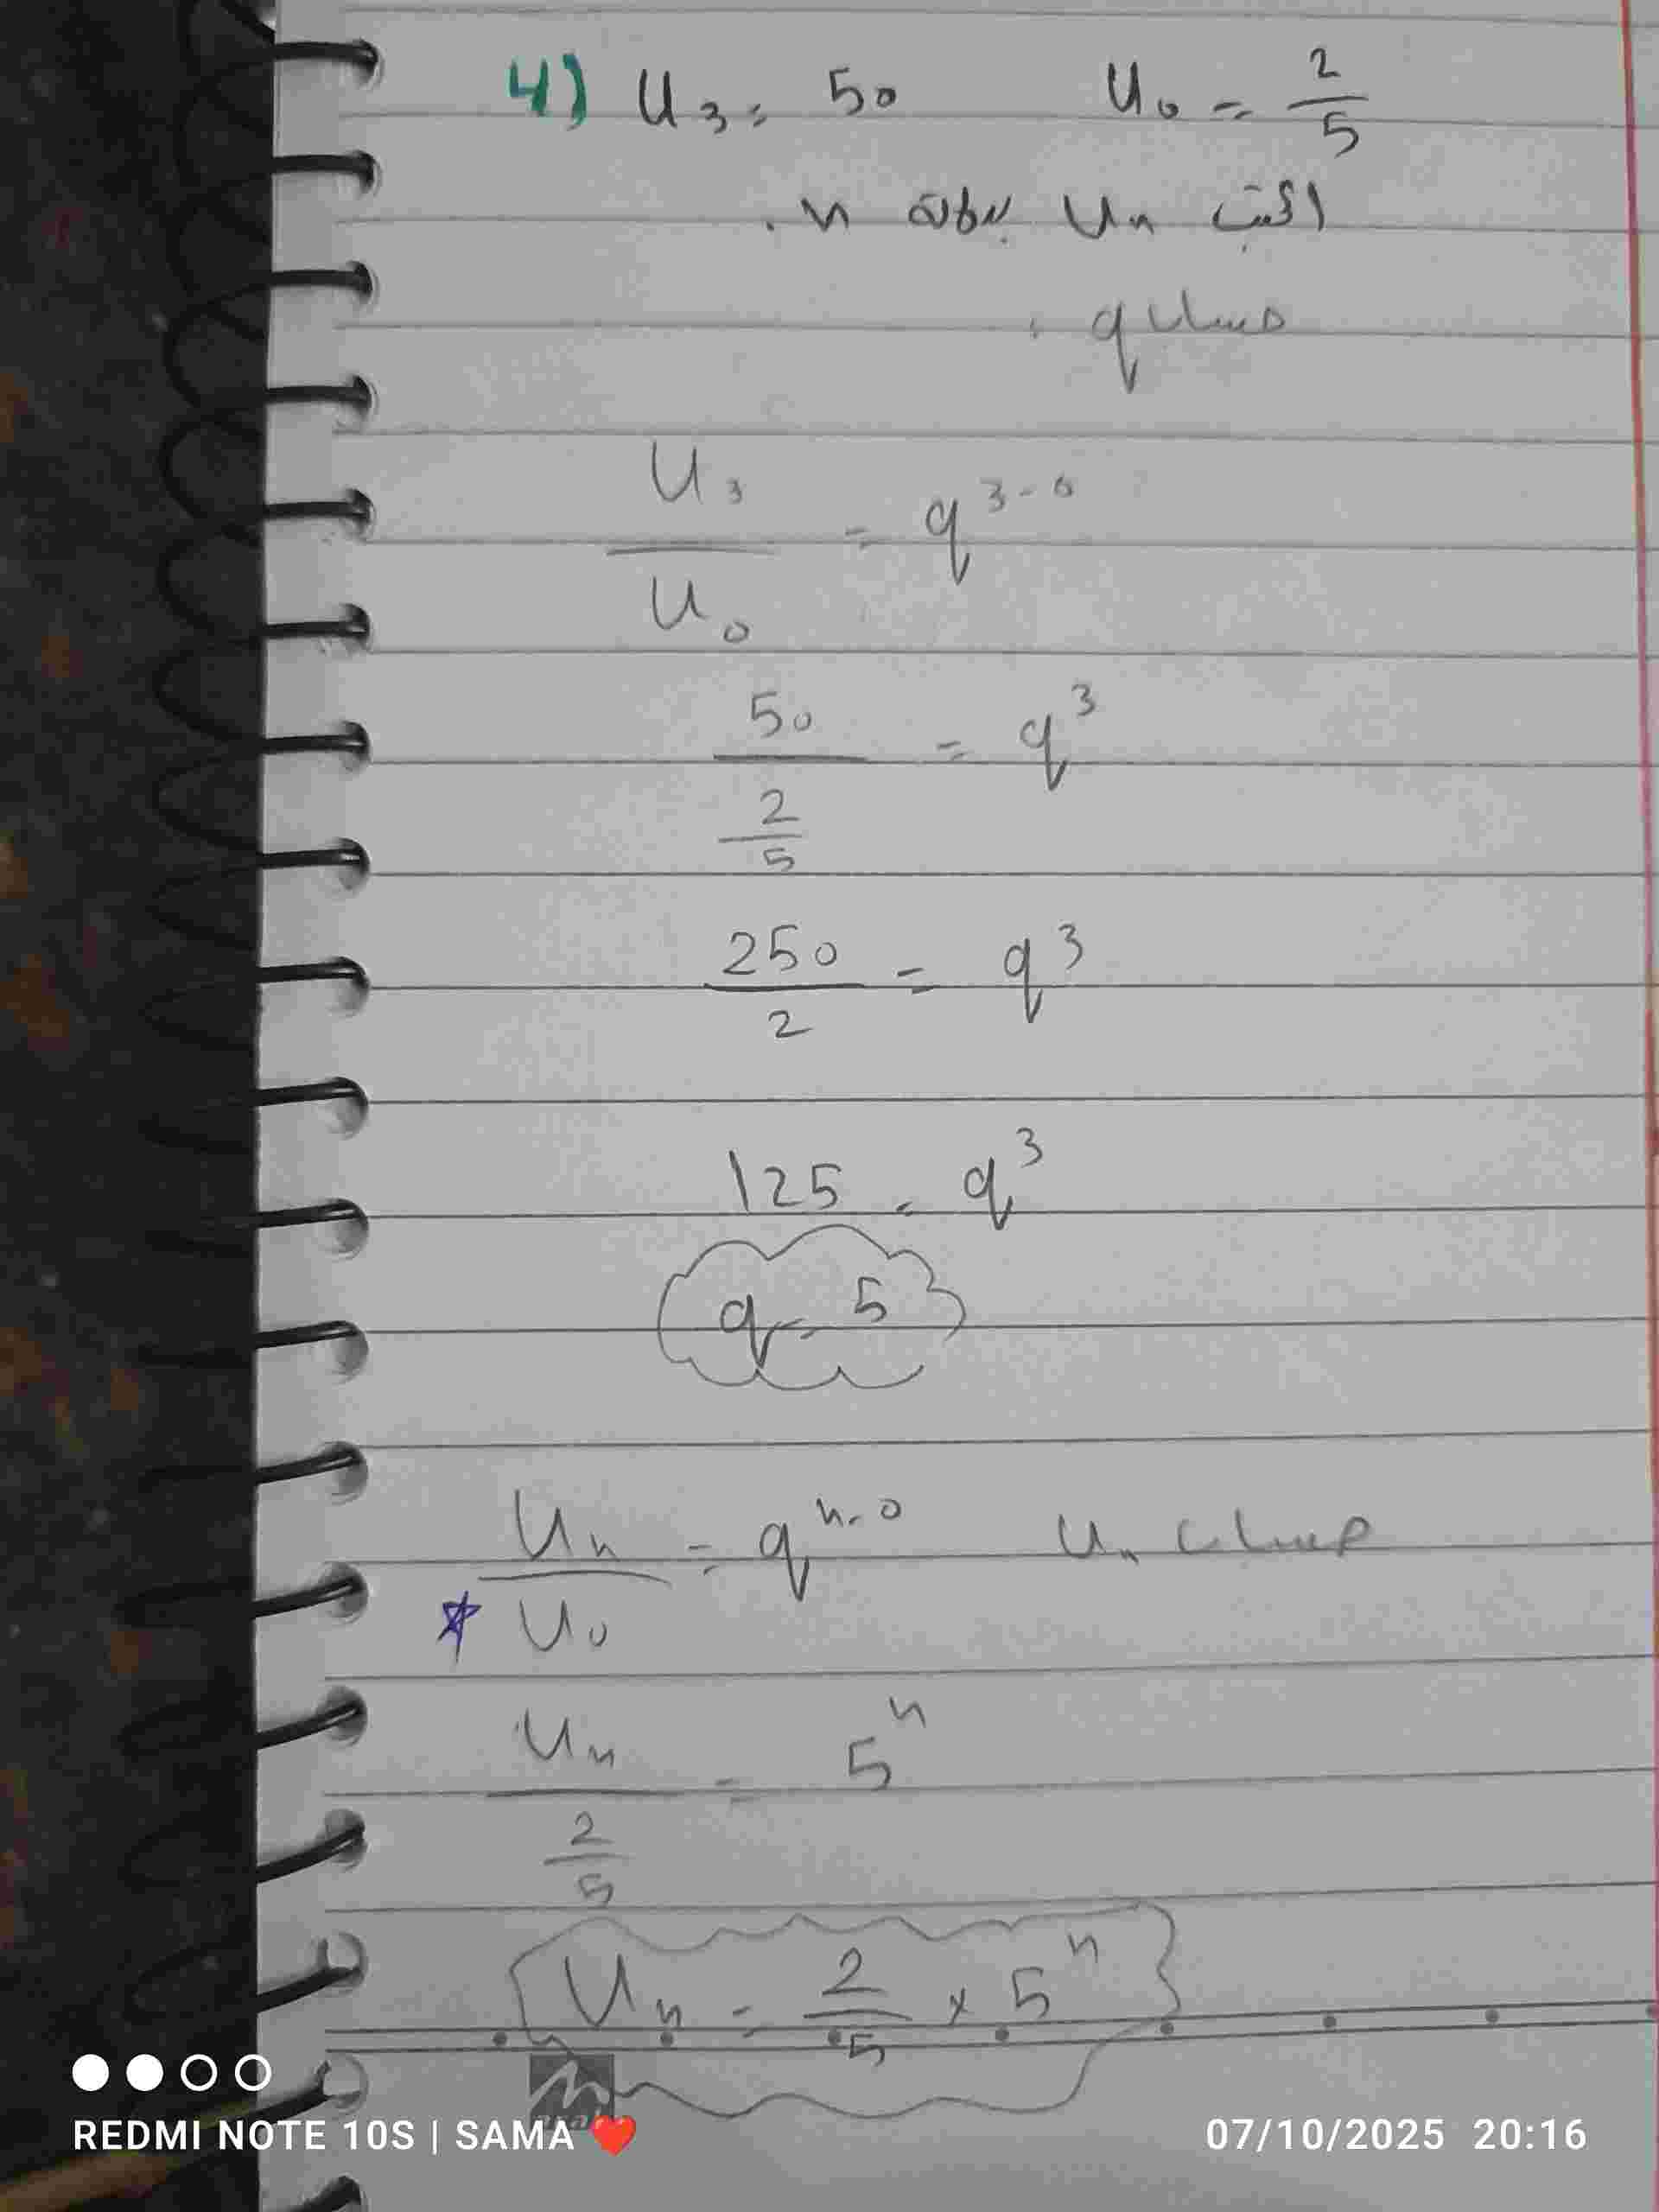 4) U₃ = 50 U₀ = 2/5
اكتب Uₙ بدلالة n .
حساب q .
U₃/U₀ = q³⁻⁰
50/(2/5) = q³
250/2 = q³
125 = q³
q = 5
حساب Uₙ Uₙ/U₀ = qⁿ⁻⁰
Uₙ/(2/5) = 5ⁿ
Uₙ = 2/5 × 5ⁿ
REDMI NOTE 10S | SAMA ❤️
07/10/2025 20:16